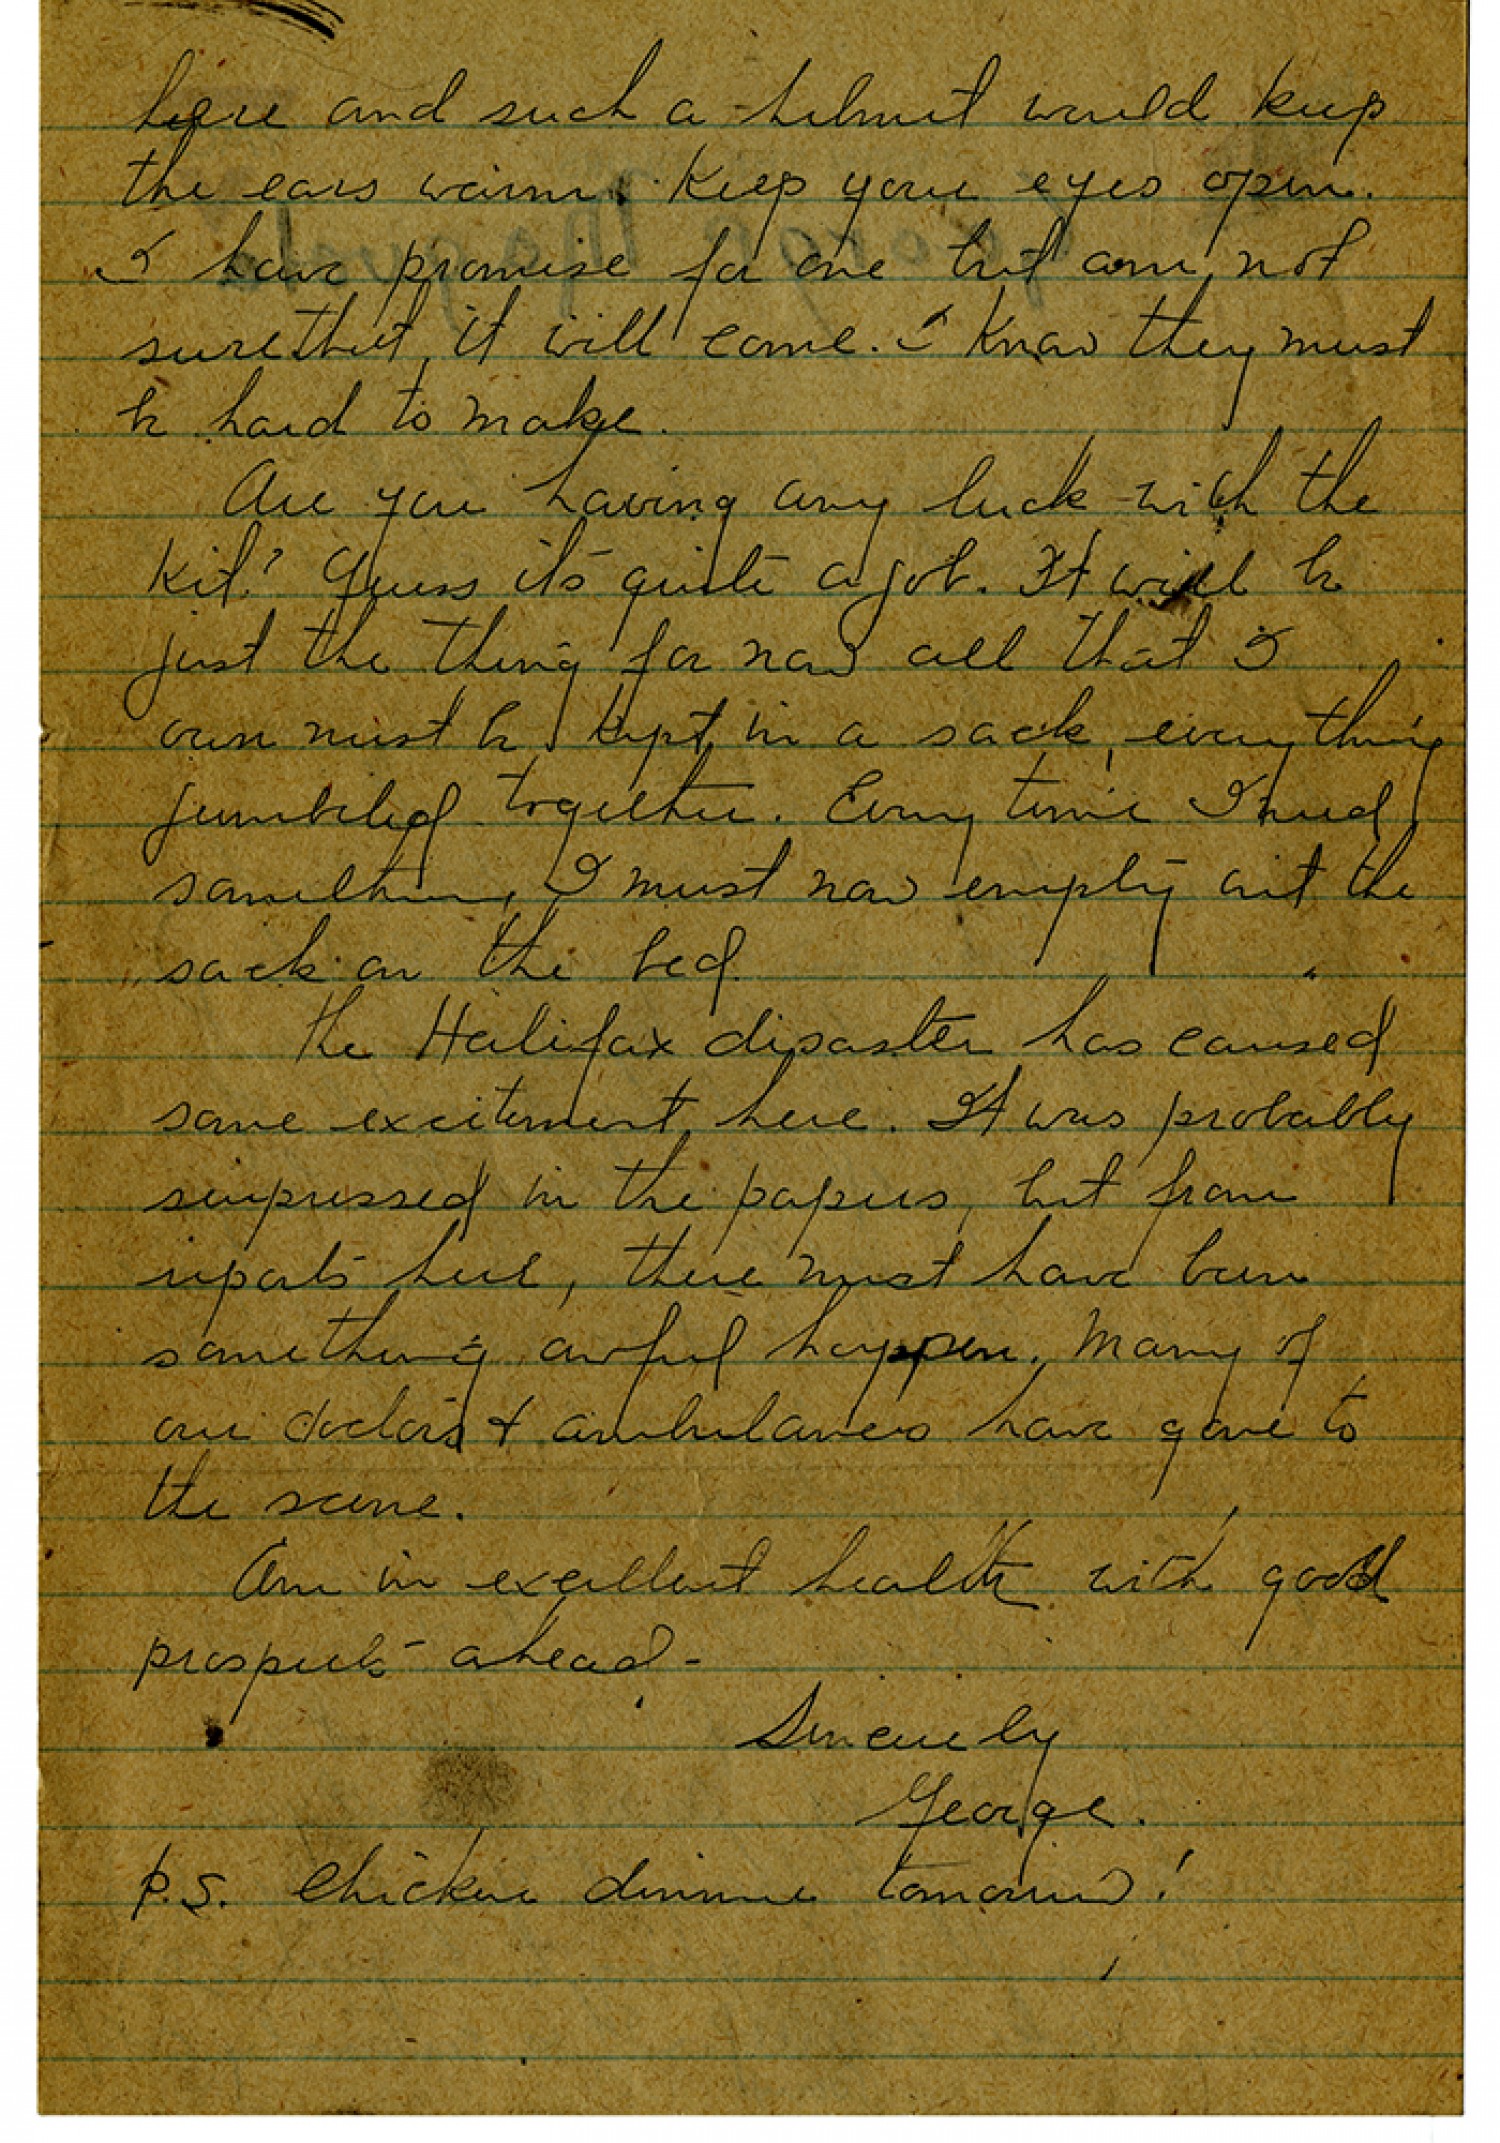 here and such a helmet would keep
the ears warm. Keep your eyes open.
I have promise for one but am not
sure that it will come. I know they must
be hard to make.
Are you having any luck with the
kit? Guess it's quite a job. It will be
just the thing for now all that I
own must be kept in a sack, everything
jumbeled together. Every time I need
something I must now empty out the
sack on the bed.
The Halifax disaster has caused
some excitement here. It was probably
surpressed in the papers, but from
reports here, there must have been
something awful happen. Many of
our doctors & ambulances have gone to
the scene.
Am in excellent health with good
prospects ahead -
Sincerely
George.
P.S. Chicken dinner tomorrow!